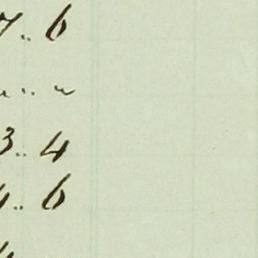 7.. 6
" .. "
3.. 4
.. 6